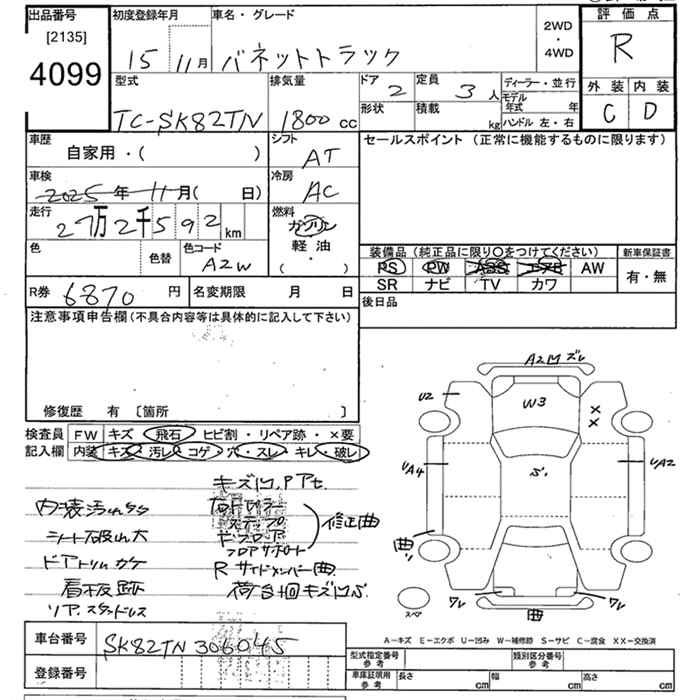 出品番号
[2135]
4099
初度登録年月
15 11月
車名・グレード
バネットトラック
2WD
・
4WD
評価点
R
型式
TC-SK82TN
排気量
1800cc
ドア
2
定員
3人
ディーラー・並行
形状
積載
kg
モデル年式 年
ハンドル 左・右
外装 内装
C D
車歴
自家用・( )
シフト
AT
セールスポイント (正常に機能するものに限ります)
車検
2025年 11月( 日)
冷房
AC
走行
27万2千592km
燃料
ガソリン
軽油
( ・ )
色
色替
色コード
A2W
装備品 (純正品に限り○をつけてください)
新車保証書
PS PW ABS エアB AW
有・無
SR ナビ TV カワ
R券 6870円
名変期限 月 日
後日品
注意事項申告欄(不具合内容等は具体的に記入して下さい)
修復歴 有 〔箇所 〕
検査員
記入欄
FW キズ 飛石 ヒビ割・リペア跡・×要
内装 キズ・汚レ・コゲ・穴・スレ・キレ・破レ
キズ凹、Pアセ
内装汚れ
シート破れ大
ドアトリムカケ
看板跡
リア スタッドレス
ステップ
フロアサポート
修正曲
Rサイドメンバー曲
荷台キズ凹
A2凹ズレ
U2
W3
×
×
UA4
UA2
曲
ワレ
曲
ワレ
スペア
A-キズ E-エクボ U-凹み W-補修跡 S-サビ C-腐食 XX-交換済
車台番号
SK82TN 306045
登録番号
型式指定番号
参考
類別区分番号
参考
車庫証明用
参考
長さ cm
幅 cm
高さ cm